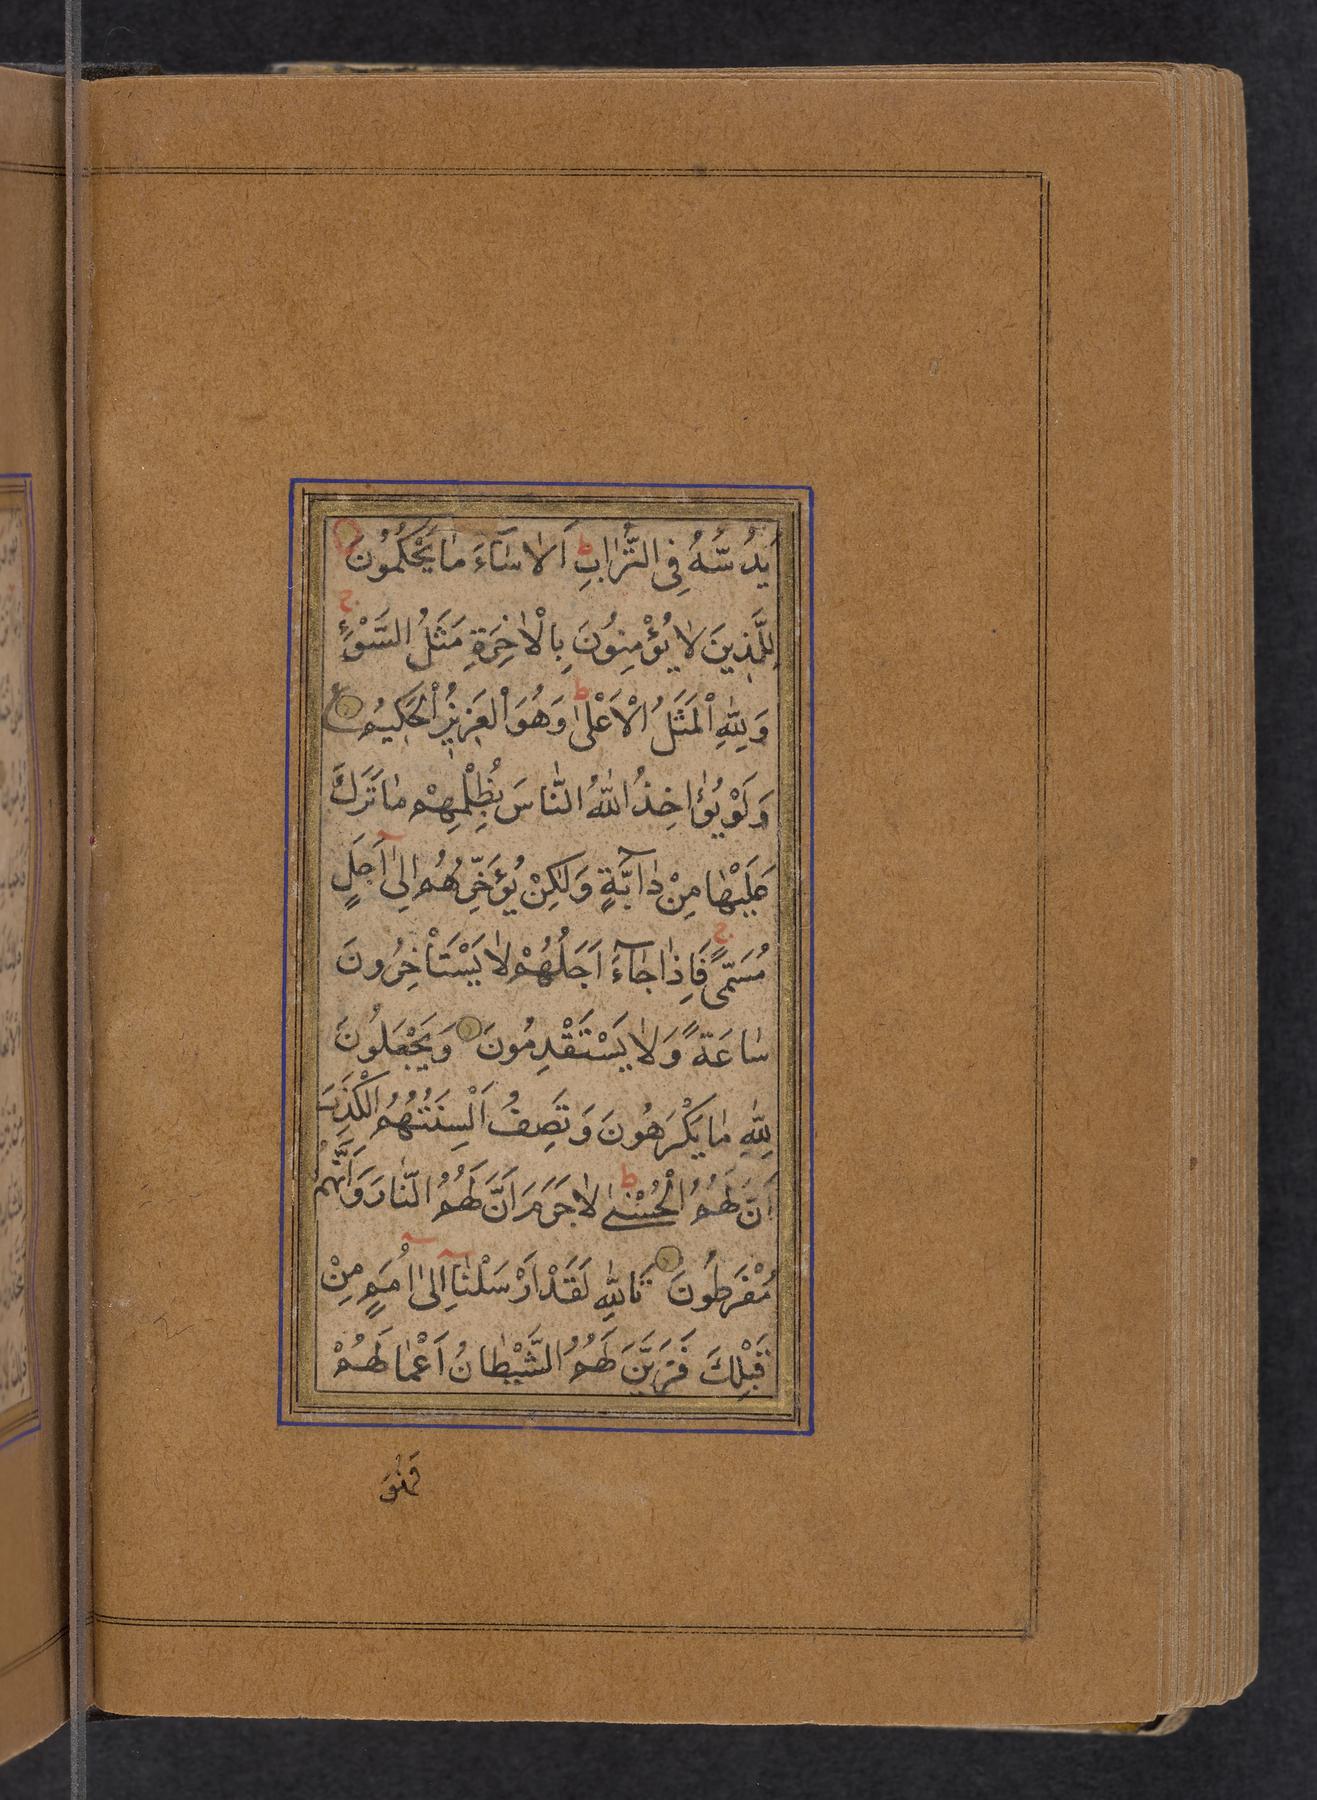 يَدُسُّهُ فِي التُّرٰابِ ط اَلاٰ سٰٓاءَ مٰا يَحْكُمُونَ
لِلَّذِينَ لاٰ يُؤْمِنُونَ بِالْاٰخِرَةِ مَثَلُ السَّوْءِ ج
وَلِلّٰهِ الْمَثَلُ الْاَعْلىٰ ط وَهُوَ الْعَزِيزُ الْحَكِيمُ ع
وَلَوْ يُؤٰاخِذُ اللّٰهُ النّٰاسَ بِظُلْمِهِمْ مٰا تَرَكَ
عَلَيْهٰا مِنْ دٰٓابَّةٍ وَلٰكِنْ يُؤَخِّرُهُمْ اِلىٰٓ اَجَلٍ
مُسَمًّى ج فَاِذٰا جٰٓاءَ اَجَلُهُمْ لاٰ يَسْتَأْخِرُونَ
سٰاعَةً وَلاٰ يَسْتَقْدِمُونَ وَيَجْعَلُونَ
لِلّٰهِ مٰا يَكْرَهُونَ وَتَصِفُ اَلْسِنَتُهُمُ الْكَذِبَ
اَنَّ لَهُمُ الْحُسْنىٰ ط لاٰ جَرَمَ اَنَّ لَهُمُ النّٰارَ وَاَنَّهُمْ
مُفْرَطُونَ تَاللّٰهِ لَقَدْ اَرْسَلْنٰٓا اِلىٰٓ اُمَمٍ مِنْ
قَبْلِكَ فَزَيَّنَ لَهُمُ الشَّيْطٰانُ اَعْمٰالَهُمْ
فَهُوَ